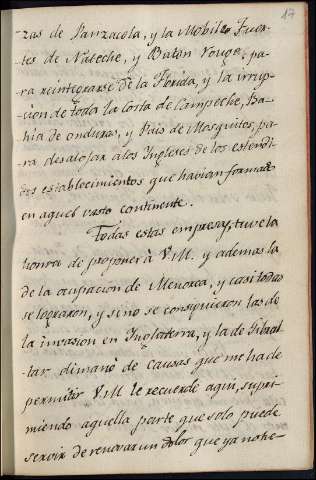 17
zas de Panzacola, y la Mobile Fuer-
tes de Nateche, y Baton Rouge, pa-
ra reintegrarse de la Florida, y la irrup-
cion de toda la Costa de Campeche, Ba-
hia de onduras, y Pais de Mosquitos, pa-
ra desalojar a los Ingleses de los estendi-
dos establecimientos que havian formado
en aquel vasto continente.
Todas estas empresas, tuve la
honrra de proponer à V.M. y ademas la
de la ocupacion de Menorca, y casi todas
se lograron, y si no se consiguieron las de
la invasion en Inglaterra, y la de Gibral-
tar dimanó de causas que me ha de
permitir V.M. le recuerde aqui, supri-
miendo aquella parte que solo puede
servir de renovar un dolor que ya no he-